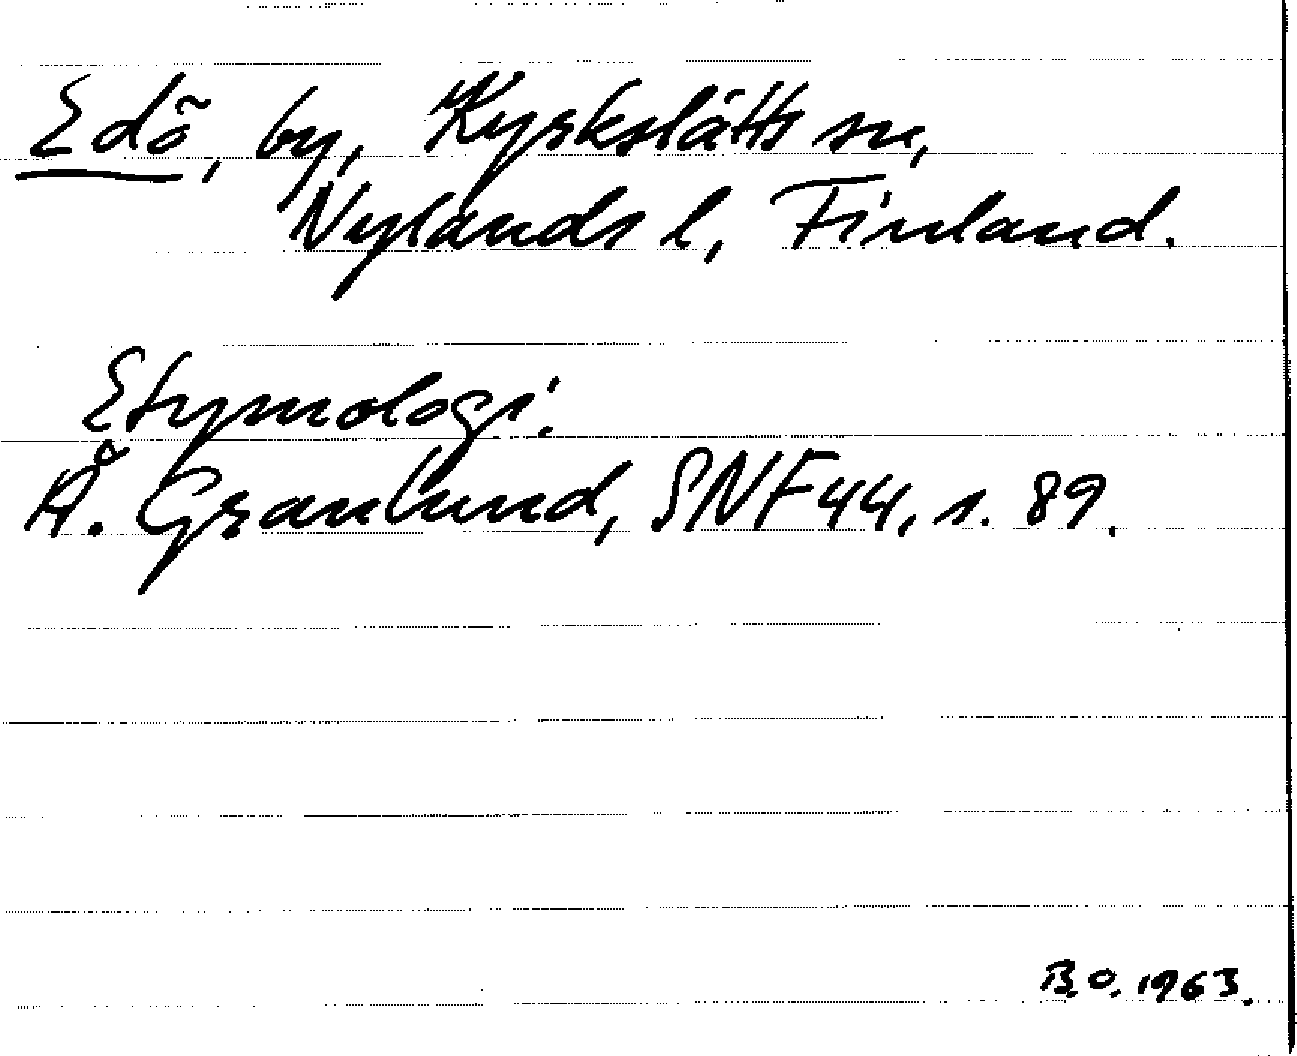 Edö, by, Kyrkslätts sn,
Nylands l, Finland.
Etymologi.
Å. Granlund, SNF 44, s. 89.
B.O. 1963.